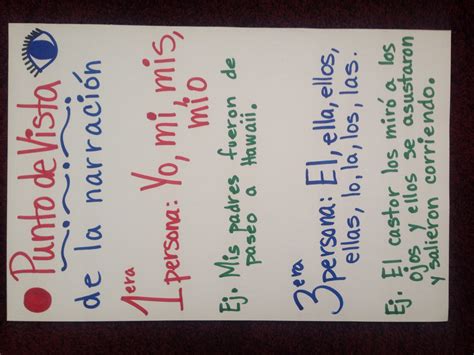 Punto de Vista
de la narración
1era persona: Yo, mi, mis,
mío
Ej. Mis padres fueron de
paseo a Hawaii.
3era persona: El, ella, ellos,
ellas, lo, la, los, las.
Ej. El castor los miró a los
ojos y ellos se asustaron
y salieron corriendo.